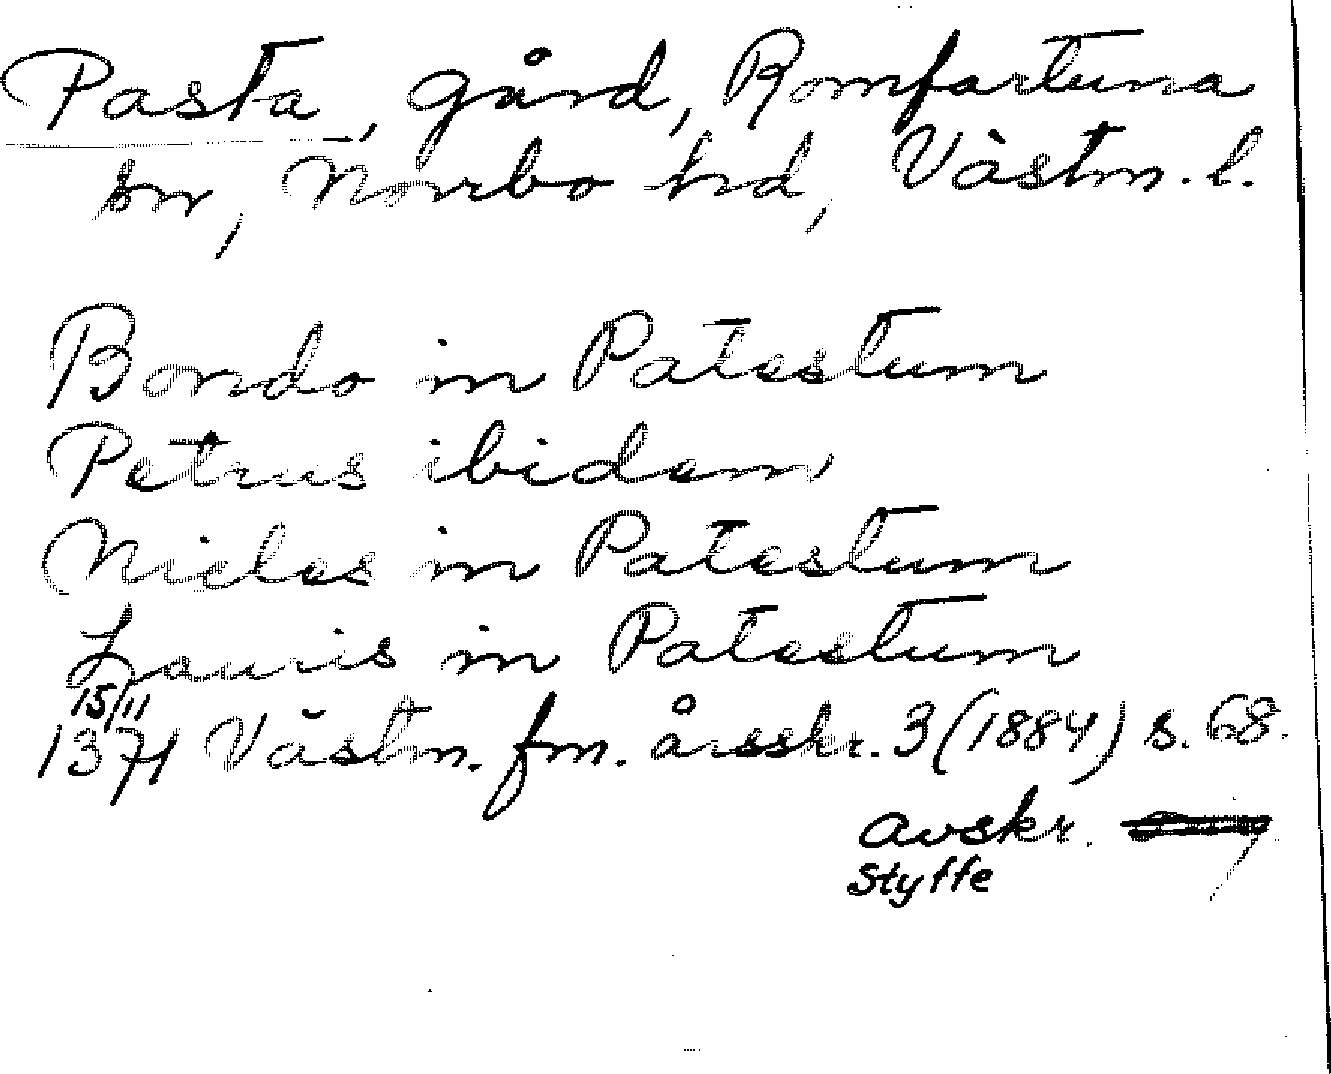 Pasta, gård, Romfartuna
sn, Norrbo hd, Västm. l.
Bondo in Patestum
Petrus ibidem
Niclas in Patestum
Lauris in Patestum
15/11
1371 Västm. fm. årsskr. 3 (1884) s. 68.
avskr.
Styffe